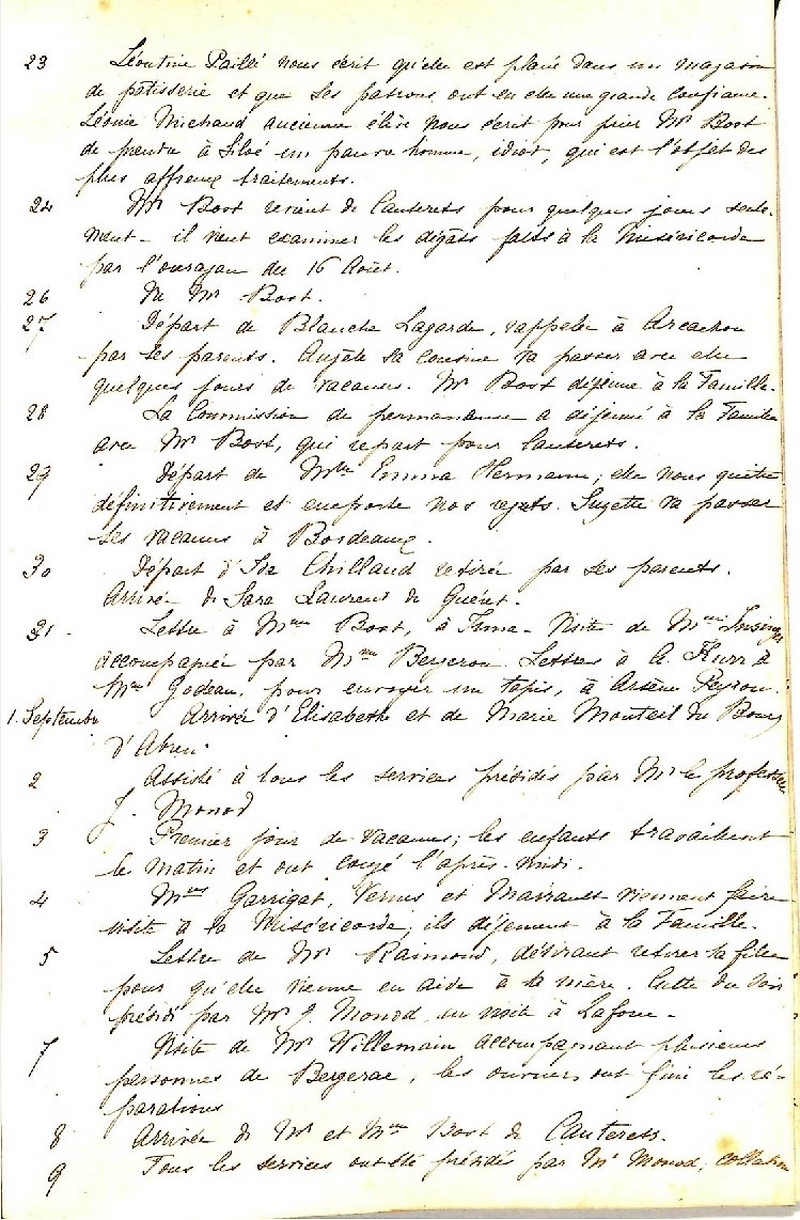 23 Léontine Paillé nous écrit qu'elle est placée dans un magasin
de patisserie et que ses patrons ont en elle une grande confiance.
Léonie Michaud ancienne élève nous écrit pour prier Mr Bost
de prendre à Siloé un pauvre homme, idiot, qui est l'objet des
plus affreux traitements.
24 Mr Bost revient de Cauterets pour quelques jours seule-
ment - il vient examiner les dégâts faits à la Miséricorde
par l'ouragan du 16 Août.
26 Vu Mr Bost.
27 Départ de Blanche Lagarde, rappelée à Arcachon
par ses parents. Angèle sa cousine va passer avec elle
quelques jours de vacances. Mr Bost déjeune à la Famille.
28 La Commission de permanence a déjeuné à la Famille
avec Mr Bost, qui repart pour Cauterets.
29 Départ de Mlle Emma Hermann; elle nous quitte
définitivement et emporte nos regrets. Suzette va passer
ses vacances à Bordeaux.
30 Départ d'Ida Chillaud retirée par ses parents.
Arrivée de Sara Laurent de Guéret.
31. Lettre à Mme Bost, à Visite de Mme
accompagnée par Mme Bergeron. Lettres à à
Mme Godeau, pour envoyer un tapis, à Arsène Peyrou.
1. Septembre Arrivée d'Elisabeth et de Marie Monteil du Bourg
d'Abren.
2 Assisté à tous les services présidés par Mr le professeur
J. Monod
3 Premier jour de vacances; les enfants travaillent
le matin et ont congé l'après-midi.
4 Mrs Garrigat, et viennent faire
visite à la Miséricorde, ils déjeunent à la Famille.
5 Lettre de Mr Raimond, désirant retirer sa fille
pour qu'elle vienne en aide à sa mère. Culte du soir
présidé par Mr J. Monod en visite à Laforce -
7 Visite de Mr Willemain accompagnant plusieurs
personnes de Bergerac, les ouvriers ont fini les ré-
parations
8 Arrivée de Mr et Mme Bost de Cauterets.
9 Tous les services ont été présidés par Mr Monod, collation